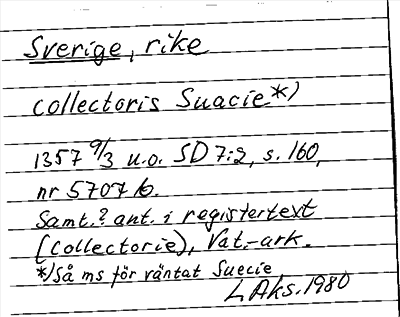 Sverige, rike
collectoris Suacie*)
1357 9/3 u.o. SD 7:2, s. 160,
nr 5707 b.
Samt.? ant. i registertext
(collectorie), Vat.-ark.
*) Så ms för väntat Suecie
L Aks. 1980